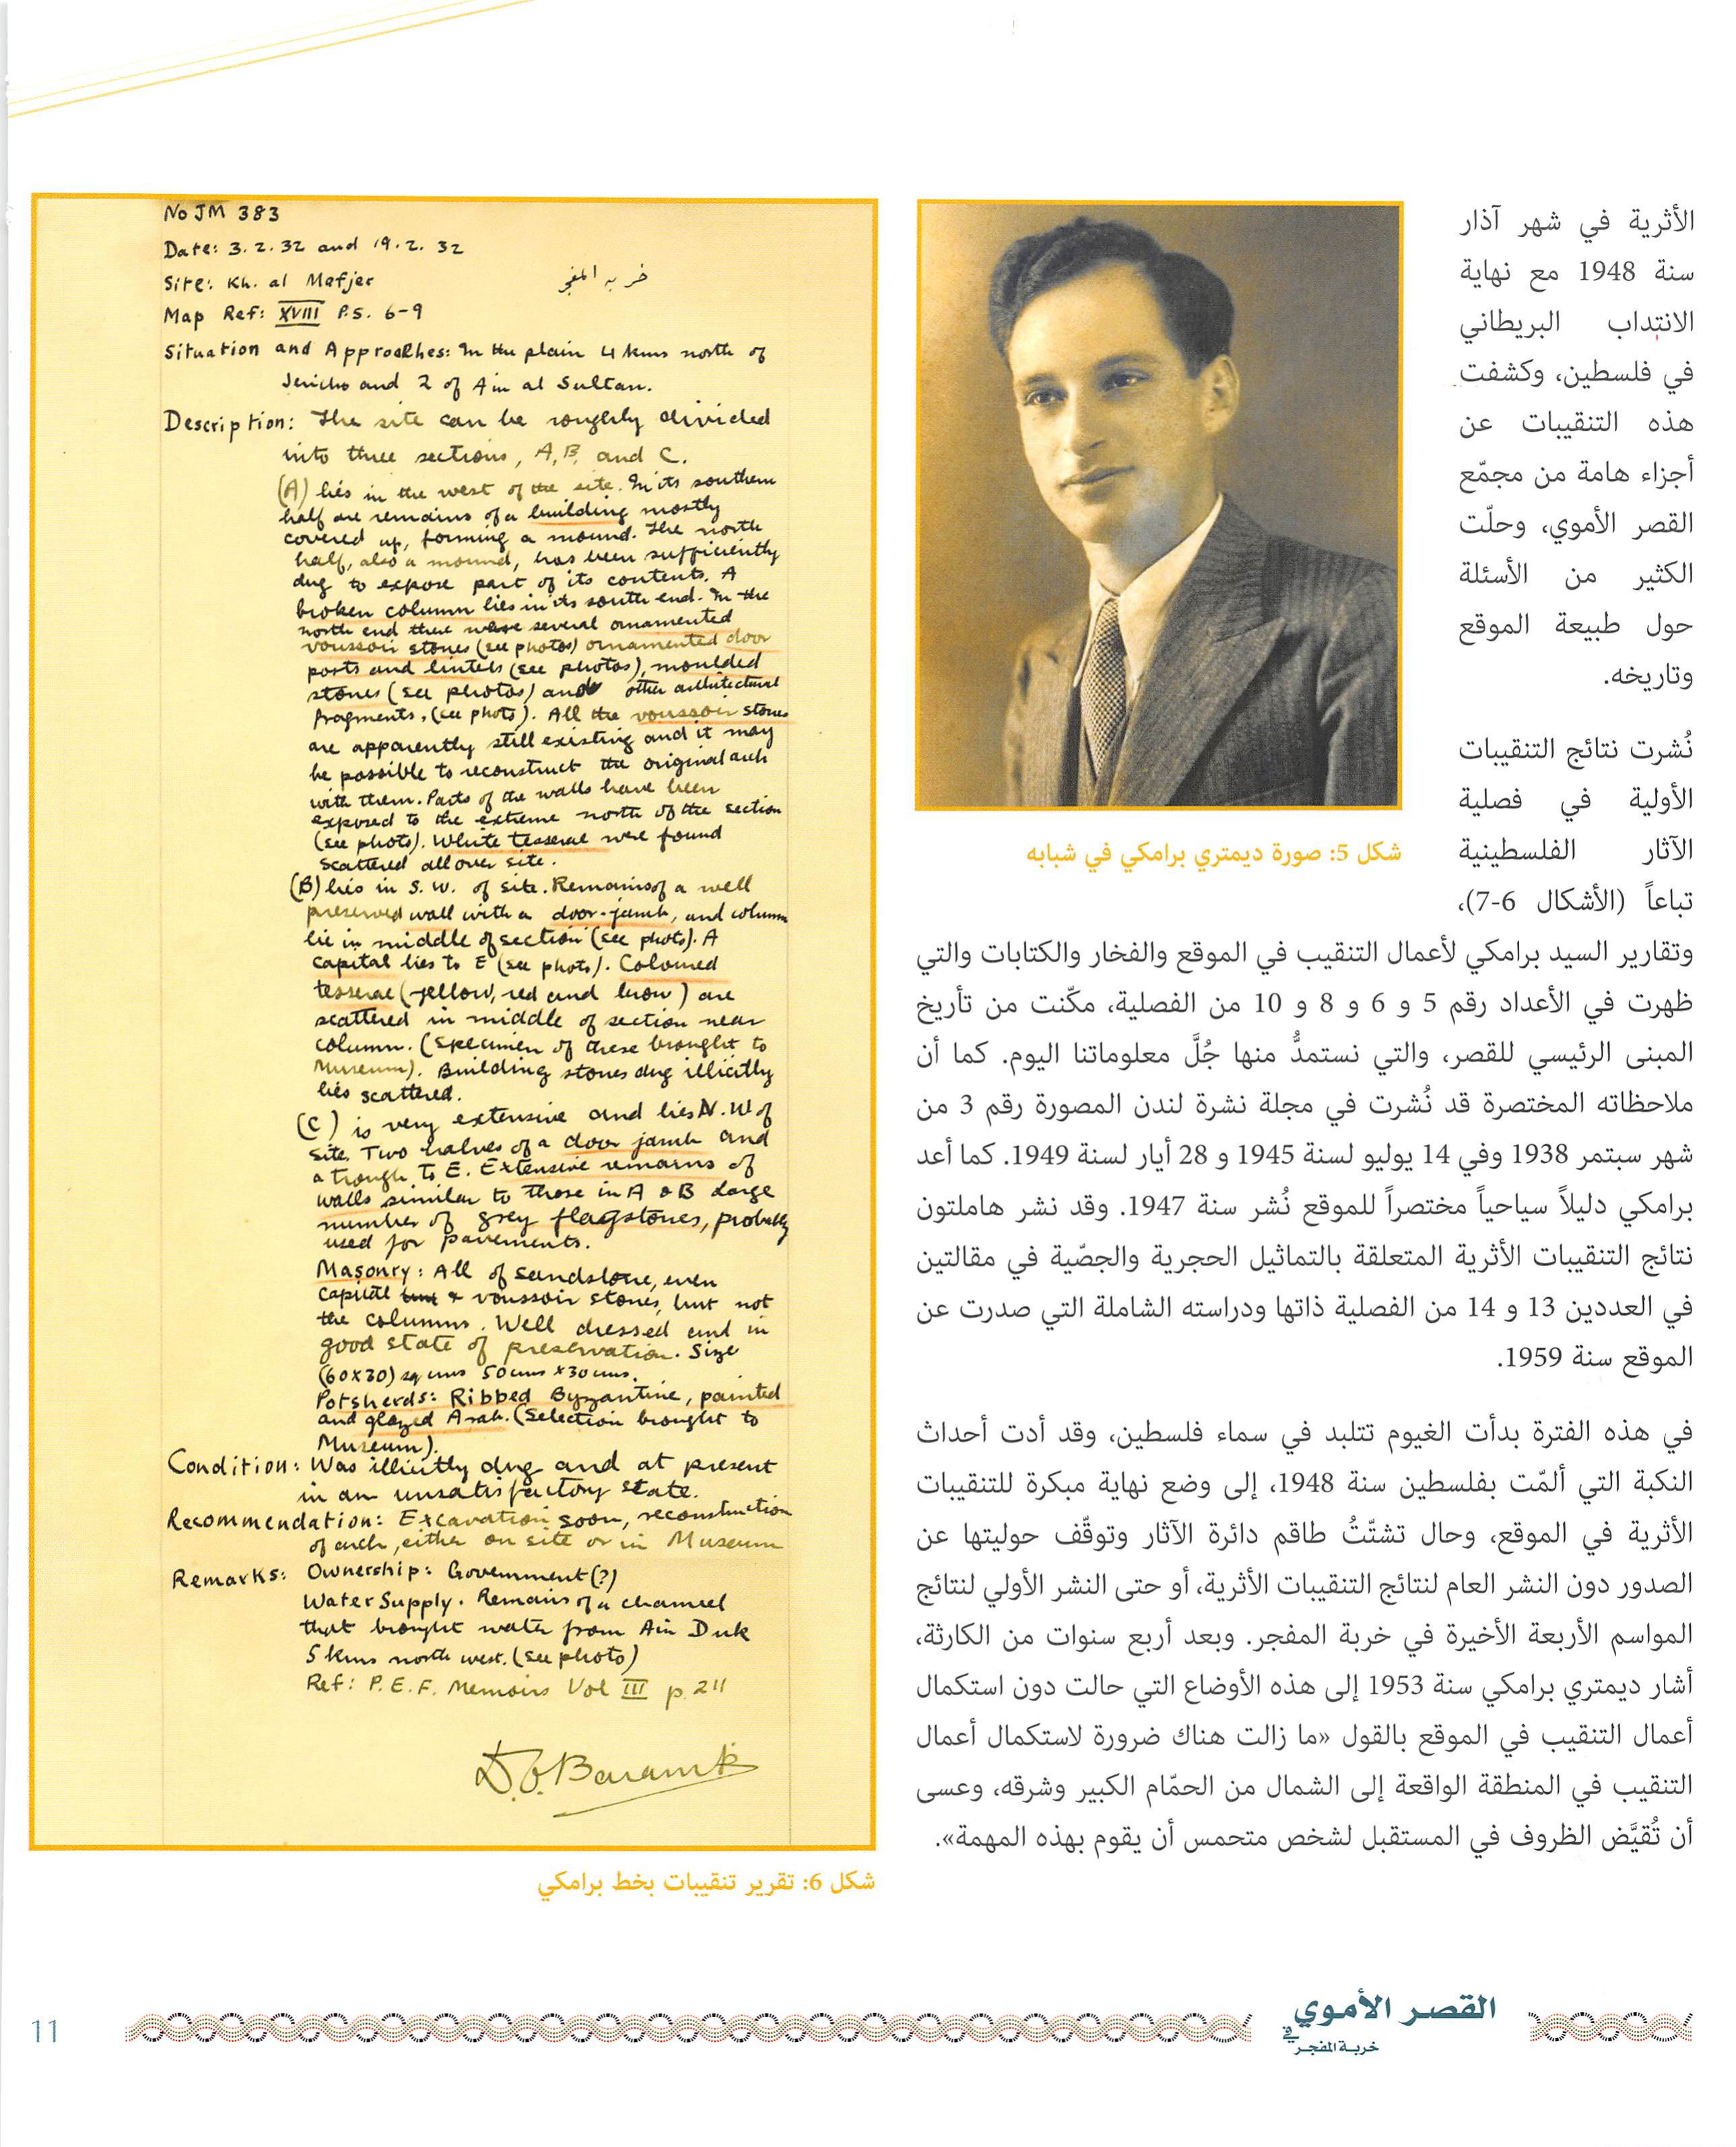 الأثرية في شهر آذار
سنة 1948 مع نهاية
الانتداب البريطاني
في فلسطين، وكشفت
هذه التنقيبات عن
أجزاء هامة من مجمّع
القصر الأموي، وحلّت
الكثير من الأسئلة
حول طبيعة الموقع
وتاريخه.
نُشرت نتائج التنقيبات
الأولية في فصلية
الآثار الفلسطينية
تباعاً (الأشكال 6-7)،
وتقارير السيد برامكي لأعمال التنقيب في الموقع والفخار والكتابات والتي
ظهرت في الأعداد رقم 5 و 6 و 8 و 10 من الفصلية، مكّنت من تأريخ
المبنى الرئيسي للقصر، والتي نستمدُّ منها جُلَّ معلوماتنا اليوم. كما أن
ملاحظاته المختصرة قد نُشرت في مجلة نشرة لندن المصورة رقم 3 من
شهر سبتمر 1938 وفي 14 يوليو لسنة 1945 و 28 أيار لسنة 1949. كما أعد
برامكي دليلاً سياحياً مختصراً للموقع نُشر سنة 1947. وقد نشر هاملتون
نتائج التنقيبات الأثرية المتعلقة بالتماثيل الحجرية والجصّية في مقالتين
في العددين 13 و 14 من الفصلية ذاتها ودراسته الشاملة التي صدرت عن
الموقع سنة 1959.
في هذه الفترة بدأت الغيوم تتلبد في سماء فلسطين، وقد أدت أحداث
النكبة التي ألمّت بفلسطين سنة 1948، إلى وضع نهاية مبكرة للتنقيبات
الأثرية في الموقع، وحال تشتّتُ طاقم دائرة الآثار وتوقّف حوليتها عن
الصدور دون النشر العام لنتائج التنقيبات الأثرية، أو حتى النشر الأولي لنتائج
المواسم الأربعة الأخيرة في خربة المفجر. وبعد أربع سنوات من الكارثة،
أشار ديمتري برامكي سنة 1953 إلى هذه الأوضاع التي حالت دون استكمال
أعمال التنقيب في الموقع بالقول «ما زالت هناك ضرورة لاستكمال أعمال
التنقيب في المنطقة الواقعة إلى الشمال من الحمّام الكبير وشرقه، وعسى
أن تُقيَّض الظروف في المستقبل لشخص متحمس أن يقوم بهذه المهمة».
شكل 5: صورة ديمتري برامكي في شبابه
No JM 383
Date: 3. 2. 32 and 19. 2. 32
Site: Kh. al Mefjer خربه المفجر
Map Ref: XVIII P.S. 6-9
Situation and Approaches: In the plain 4 kms north of
Jericho and 2 of Ain al Sultan.
Description: The site can be roughly divided
into three sections, A, B, and C.
(A) lies in the west of the site. In its southern
half are remains of a building mostly
covered up, forming a mound. The north
half, also a mound, has been sufficiently
dug to expose part of its contents. A
broken column lies in its south end. In the
north end there were several ornamented
voussoir stones (see photos) ornamented door
posts and lintels (see photos), moulded
stones (see photos) and other architectural
fragments, (see photo). All the voussoir stones
are apparently still existing and it may
be possible to reconstruct the original arch
with them. Parts of the walls have been
exposed to the extreme north of the section
(see photo). White tesserae were found
scattered all over site.
(B) lies in S. W. of site. Remains of a well
preserved wall with a door-jamb, and column
lie in middle of section (see photo). A
capital lies to E (see photo). Coloured
tesserae (yellow, red and brow) are
scattered in middle of section near
column. (Specimen of these brought to
Museum). Building stones dug illicitly
lies scattered.
(C) is very extensive and lies N. W of
site. Two halves of a door jamb and
a trough to E. Extensive remains of
walls similar to those in A & B large
number of grey flagstones, probably
used for pavements.
Masonry: All of sandstone, even
capital & voussoir stones, but not
the columns. Well dressed and in
good state of preservation. Size
(60x30) sq cms 50cms x30cms.
Potsherds: Ribbed Byzantine, painted
and glazed Arab. (Selection brought to
Museum).
Condition: Was illicitly dug and at present
in an unsatisfactory state.
Recommendation: Excavation soon, reconstruction
of arch, either on site or in Museum
Remarks: Ownership: Government(?)
Water Supply. Remains of a channel
that brought water from Ain Duk
5 kms north west. (see photo)
Ref: P. E. F. Memoirs Vol III p. 211
D. C. Baramki
شكل 6: تقرير تنقيبات بخط برامكي
القصر الأموي
في خربة المفجر
11